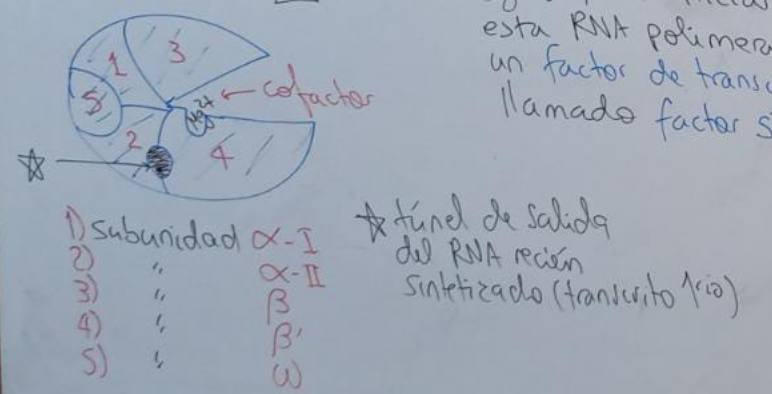 esta RNA
un factor de
llamado factor
1
3
5
2
4
Mg2+
← cofactor
1) Subunidad α-I
2) " α-II
3) " β
4) " β'
5) " ω
☆ túnel de salida
del RNA recién
sintetizado (transcrito 1rio)